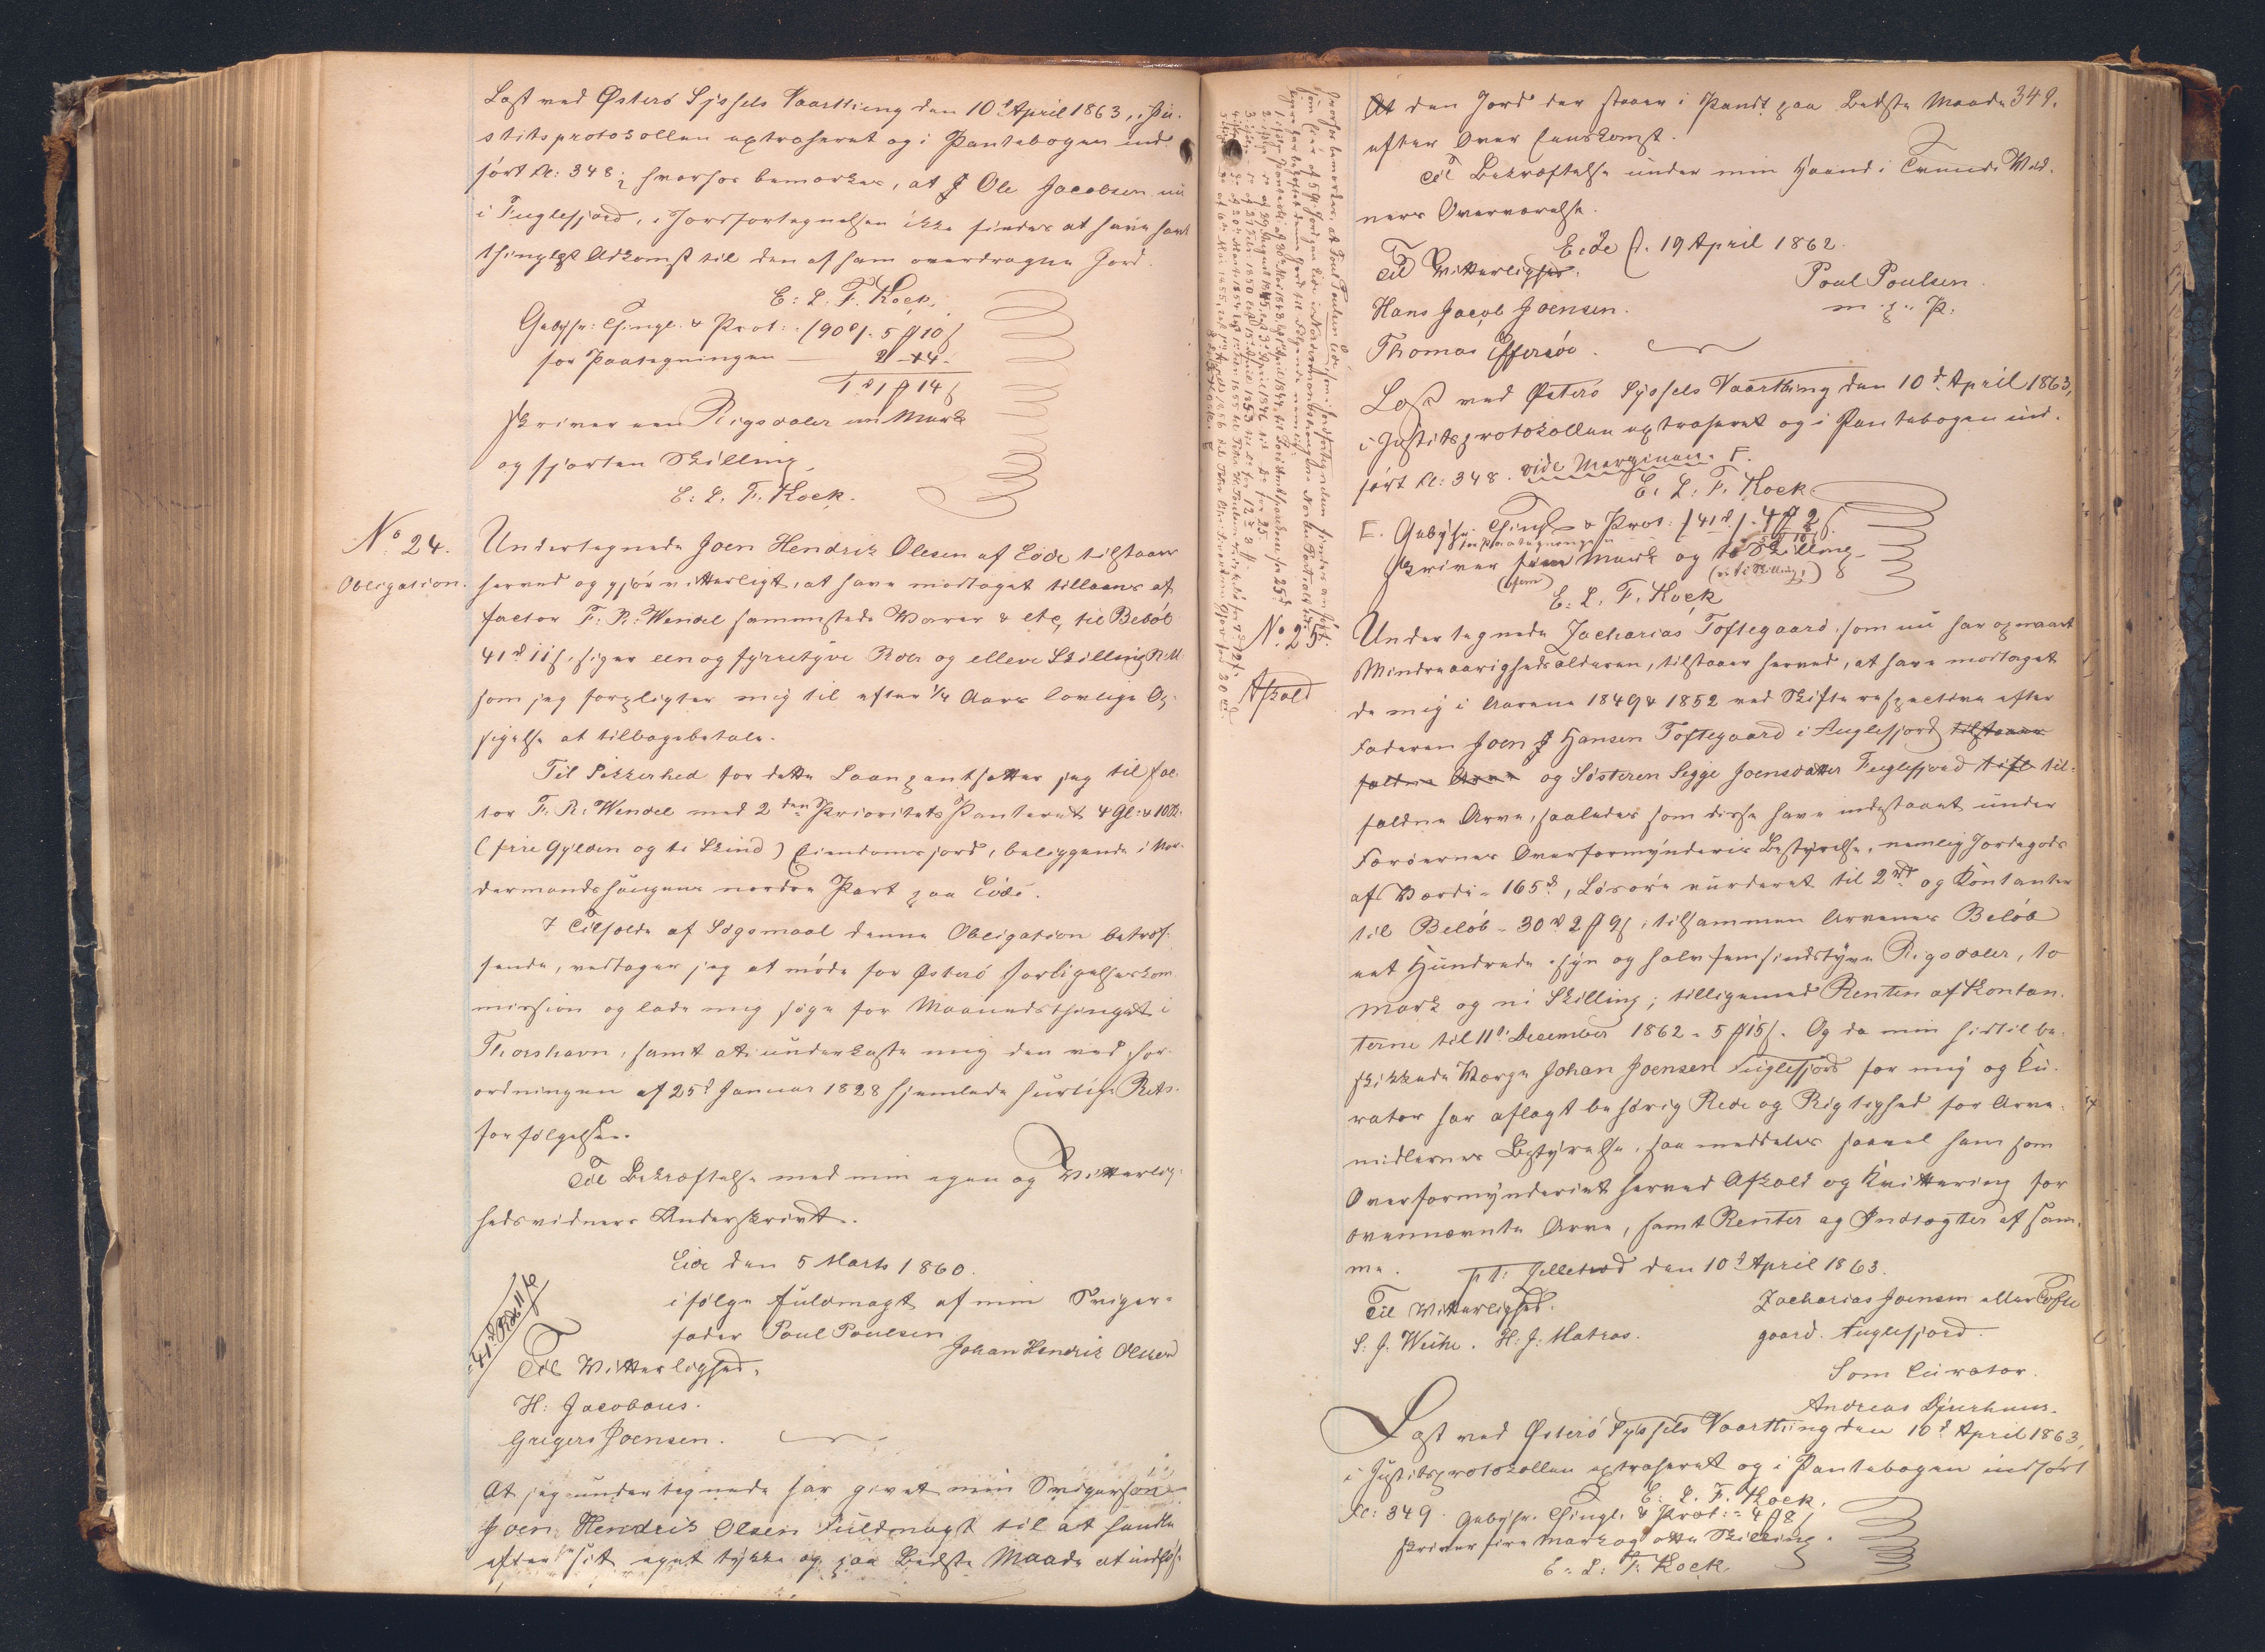 Læst ved Østerø Syssels Vaarthing den 10d April 1863, i Ju-
stitsprotokollen extraheret og i Pantebogen ind-
ført Fol: 348; hvorhos bemærkes, at J Ole Jacobsen nu
i Fuglefjord, i Jordfortegnelsen ikke findes at have havt
thinglæst Adkomst til den af ham overdragne Jord.
E: L. F. Kock.
Gebyhr: Thingl. & Prot: (90d). 5 ℔ 10 ß
for Paategningen 2 - 4 -
1 d 1 ℔ 14 ß
skriver een Rigsdaler en Mark
og fjorten Skilling
E: L. F. Kock.
No 24.
Obligation.
Undertegnede Joen Hendrik Olesen af Eide tilstaaer
herved og gjør vitterligt, at have modtaget tillaans af
factor F. R. Wendel sammesteds Varer & etc, til Beløb
41d 11 ß, siger een og fyrretyve Rdlr og elleve Skilling R.M.
som jeg forpligter mig til efter 1/4 Aars lovlige Op-
sigelse at tilbagebetale.
Til Sikkerhed for dette Laan pantsætter jeg til fac-
tor F. R. Wendel med 2den Prioritets Panteret 4 Gl: & 10 Sk.
(fire Gylden og ti Skind) Eiendomsjord, beliggende i Nor-
dermandshaugens nordre Part paa Eide.
I Tilfælde af Søgsmaal denne Obligation betræf-
fende, vedtager jeg at møde for Østerø Forligelseskom-
mission og lade mig søge for Maanedsthinget i
Thorshavn, samt at underkaste mig den ved For-
ordningen af 25d Januar 1828 hjemlede hurtige Rets-
forfølgelse.
Til Bekræftelse med min egen og Vitterlig-
hedsvidners Underskrivt.
Eide den 5 Marts 1860.
ifølge Fuldmagt af min Sviger-
fader Poul Poulsen
Johan Hendrik Olesen
41d Rdr 11 ß
Til Vitterlighed.
H: Jacobæus.
Gregers Joensen.
At jeg undertegnede har givet min Svigersøn
Joen Hendrik Olsen Fuldmagt til at handle
efter sit eget tykke og paa Bedste Maade at indløse
hvorhos bemærkes, at Poul Poulsen Eide, som i Jordfortegnelsen findes anført
349.
At den Jord der staaer i Pandt paa Bedste Maade
efter Over Eenskomst.
Til Bekræftelse under min Haand i Tvende Vid-
ners Overværelse.
Eide d. 19 April 1862.
Til Vitterlighed.
Poul Poulsen
m. p. P.
Hans Jacob Joensen.
Thomas Effersøe.
Læst ved Østerø Syssels Vaarthing den 10d April 1863,
i Justitsprotokollen extraheret og i Pantebogen ind-
ført Fol: 348. vide Marginen. F.
E. L. F. Kock
E. Gebyhr Thingl & Prot: (41d). 4 ℔ 2 ß.
for Paategningen
skriver fire Mark og to Skilling
(fem) (ti Skilling)
E: L. F. Kock
No 25
Afkald
Undertegnede Zacharias Toftegaard, som nu har opnaaet
Mindreaarighedsalderen, tilstaaer herved, at have modtaget
de mig i Aarene 1849 & 1852 ved Skifte respective efter
Faderen Joen J Hansen Toftegaard i Fuglefjord tilstaaer
faldne Arve og Søsteren Sigge Joensdatter Fuglefjord tilf til-
faldne Arve, saaledes som disse have indestaaet under
Færøernes Overformynderis Bestyrelse, nemlig Jordegods
af Værdi = 165d, Løsøre vurderet til 2rd og Kontanter
til Beløb - 30d 2 ℔ 9 ß; tilsammen Arvenes Beløb
eet Hundrede syv og halvfemsindstyve Rigsdaler, to
Mark og ni Skilling; tilligemed Renten af Kontan-
terne til 11d December 1862 = 5 ℔ 15 ß. Og da min hidtil be-
skikkede Værge Johan Joensen Fuglefjord for mig og Cu-
rator har aflagt behørig Rede og Rigtighed for Arve-
midlernes Bestyrelse, saa meddeles saavel ham som
Overformynderiet herved Afkald og Kvittering for
ovennævnte Arve, samt Renter og Indtægter af sam-
me.
p. t. Gillebod den 10d April 1863.
Til Vitterlighed.
Zacharias Joensen eller Tofte
S. J. Weihe. H: J: Matras.
gaard. Fuglefjord.
Som Curator.
Andreas Djurhuus.
Læst ved Østerø Syssels Vaarthing den 10d April 1863,
i Justitsprotokollen extraheret og i Pantebogen indført
Fol: 349.
E. L. F. Kock.
Gebyhr. Thingl. & Prot: = 4 ℔ 8 ß
skriver fire Mark og otte Skilling.
E. L: F. Kock